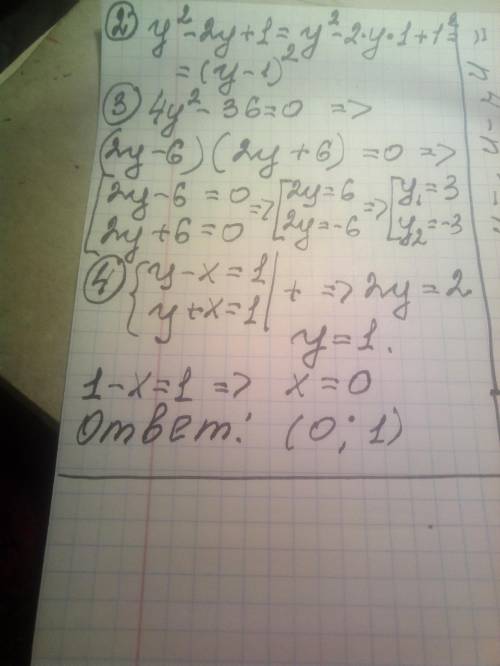 ② y² - 2y + 1 = y² - 2·y·1 + 1² =
= (y - 1)²
③ 4y² - 36 = 0 =>
(2y - 6)(2y + 6) = 0 =>
[2y - 6 = 0 => [2y = 6 => [y₁ = 3
2y + 6 = 0 2y = -6 y₂ = -3
④ {y - x = 1 | + => 2y = 2
y + x = 1
y = 1.
1 - x = 1 => x = 0
Ответ: (0; 1)